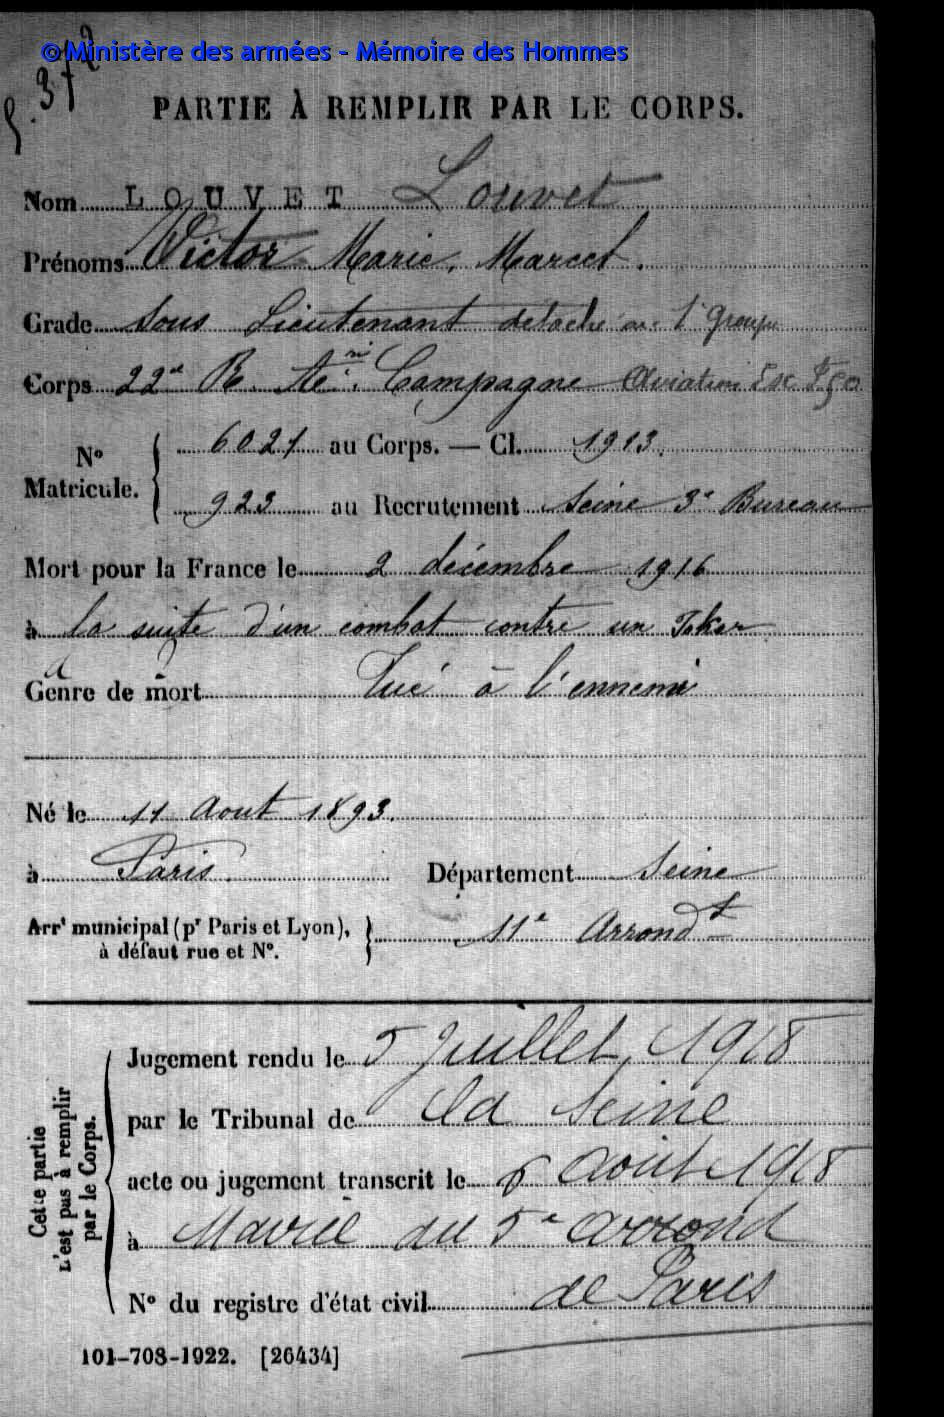 © Ministère des armées - Mémoire des Hommes
372
PARTIE À REMPLIR PAR LE CORPS.
Nom LOUVET Louvet
Prénoms Victor Marie, Marcel.
Grade Sous Lieutenant détaché au 1er Groupe
Corps 22e R. Campagne Aviation Esc
N° Matricule. 6021 au Corps. — Cl. 1913.
923 au Recrutement Seine 3e Bureau
Mort pour la France le 2 décembre 1916
à la suite d'un combat contre un Fokker
Genre de mort Tué à l'ennemi
Né le 11 Aout 1893.
à Paris. Département Seine
Arrt municipal (pr Paris et Lyon), à défaut rue et N°. 11e Arrondt
Cette partie n'est pas à remplir par le Corps.
Jugement rendu le 5 Juillet, 1918
par le Tribunal de la Seine
acte ou jugement transcrit le 6 Août 1918
à Mairie du 5e arrond
N° du registre d'état civil de Paris
101-708-1922. [26434]